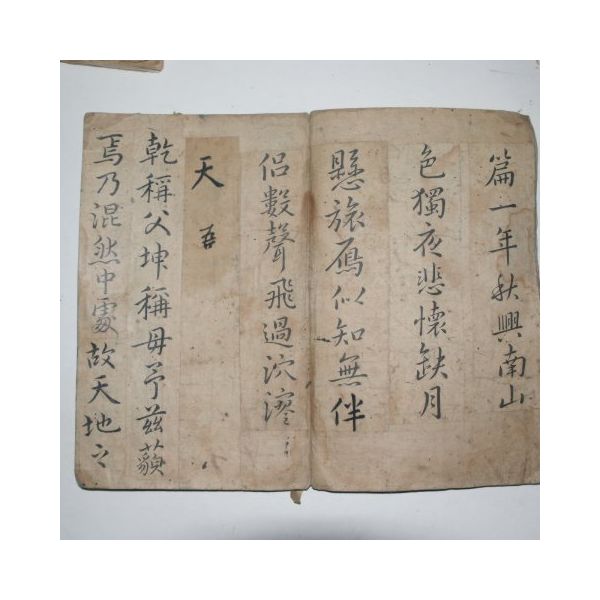 篇一年秋興南山
色獨夜悲懷缺月
懸旅鴈似知無伴
侶數聲飛過泬漻
天 吾
乾稱父坤稱母予茲藐
焉乃混然中處故天地之